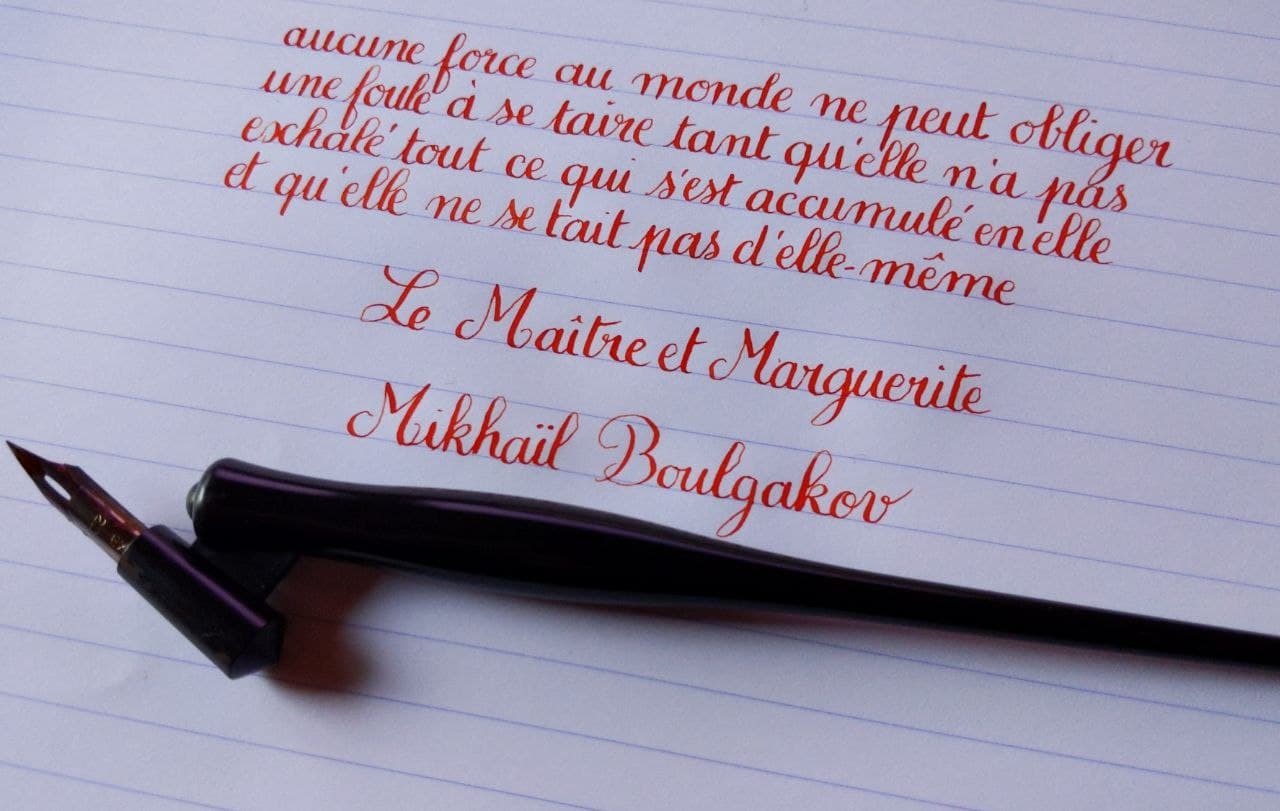 aucune force au monde ne peut obliger
une foule à se taire tant qu'elle n'a pas
exchalé tout ce qui s'est accumulé en elle
et qu'elle ne se tait pas d'elle-même
Le Maître et Marguerite
Mikhaïl Boulgakov